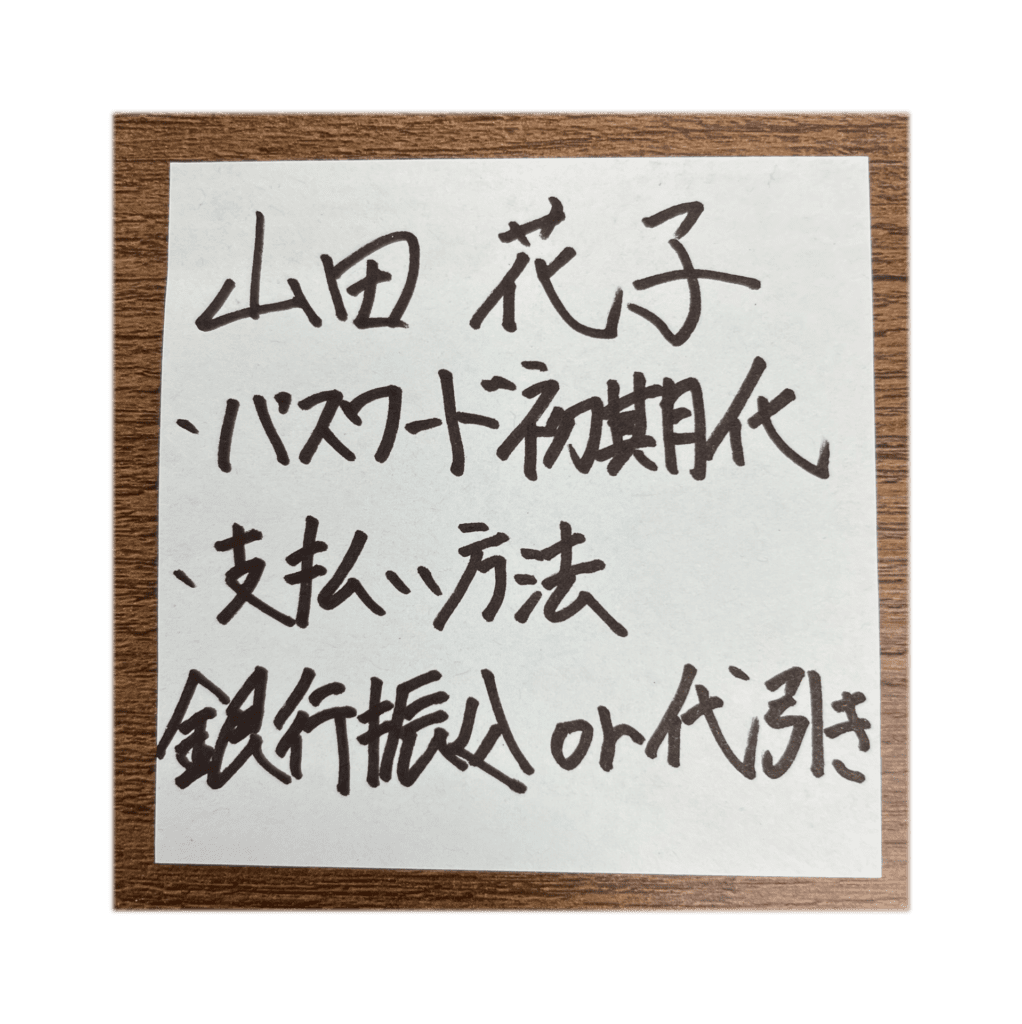 山田 花子
・パスワード初期代
・支払い方法
銀行振込 or 代引き